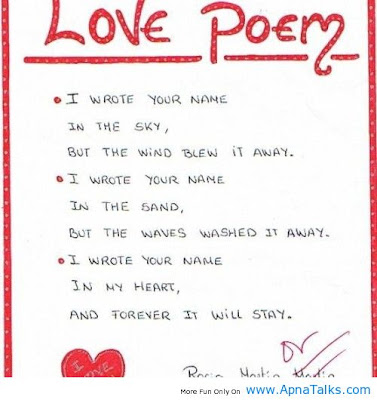 LOVE POEM
I WROTE YOUR NAME
IN THE SKY,
BUT THE WIND BLEW IT AWAY.
I WROTE YOUR NAME
IN THE SAND,
BUT THE WAVES WASHED IT AWAY.
I WROTE YOUR NAME
IN MY HEART,
AND FOREVER IT WILL STAY.
I LOVE
Martin
More Fun Only On www.ApnaTalks.com